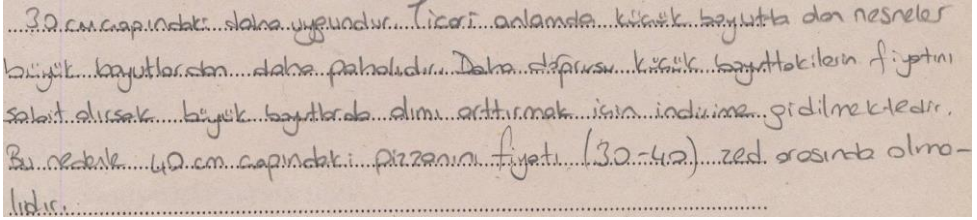 30 cm çapındaki daha uygundur. Ticari anlamda küçük boyutta olan nesneler
büyük boyutlardan daha pahalıdır. Daha doğrusu küçük boyuttakilerin fiyatını
sabit alırsak büyük boytlarda alımı arttırmak için indirime gidilmektedir.
Bu nedenle 40 cm çapındaki pizzanını fiyatı (30-40) zed arasında olma-
lıdır.